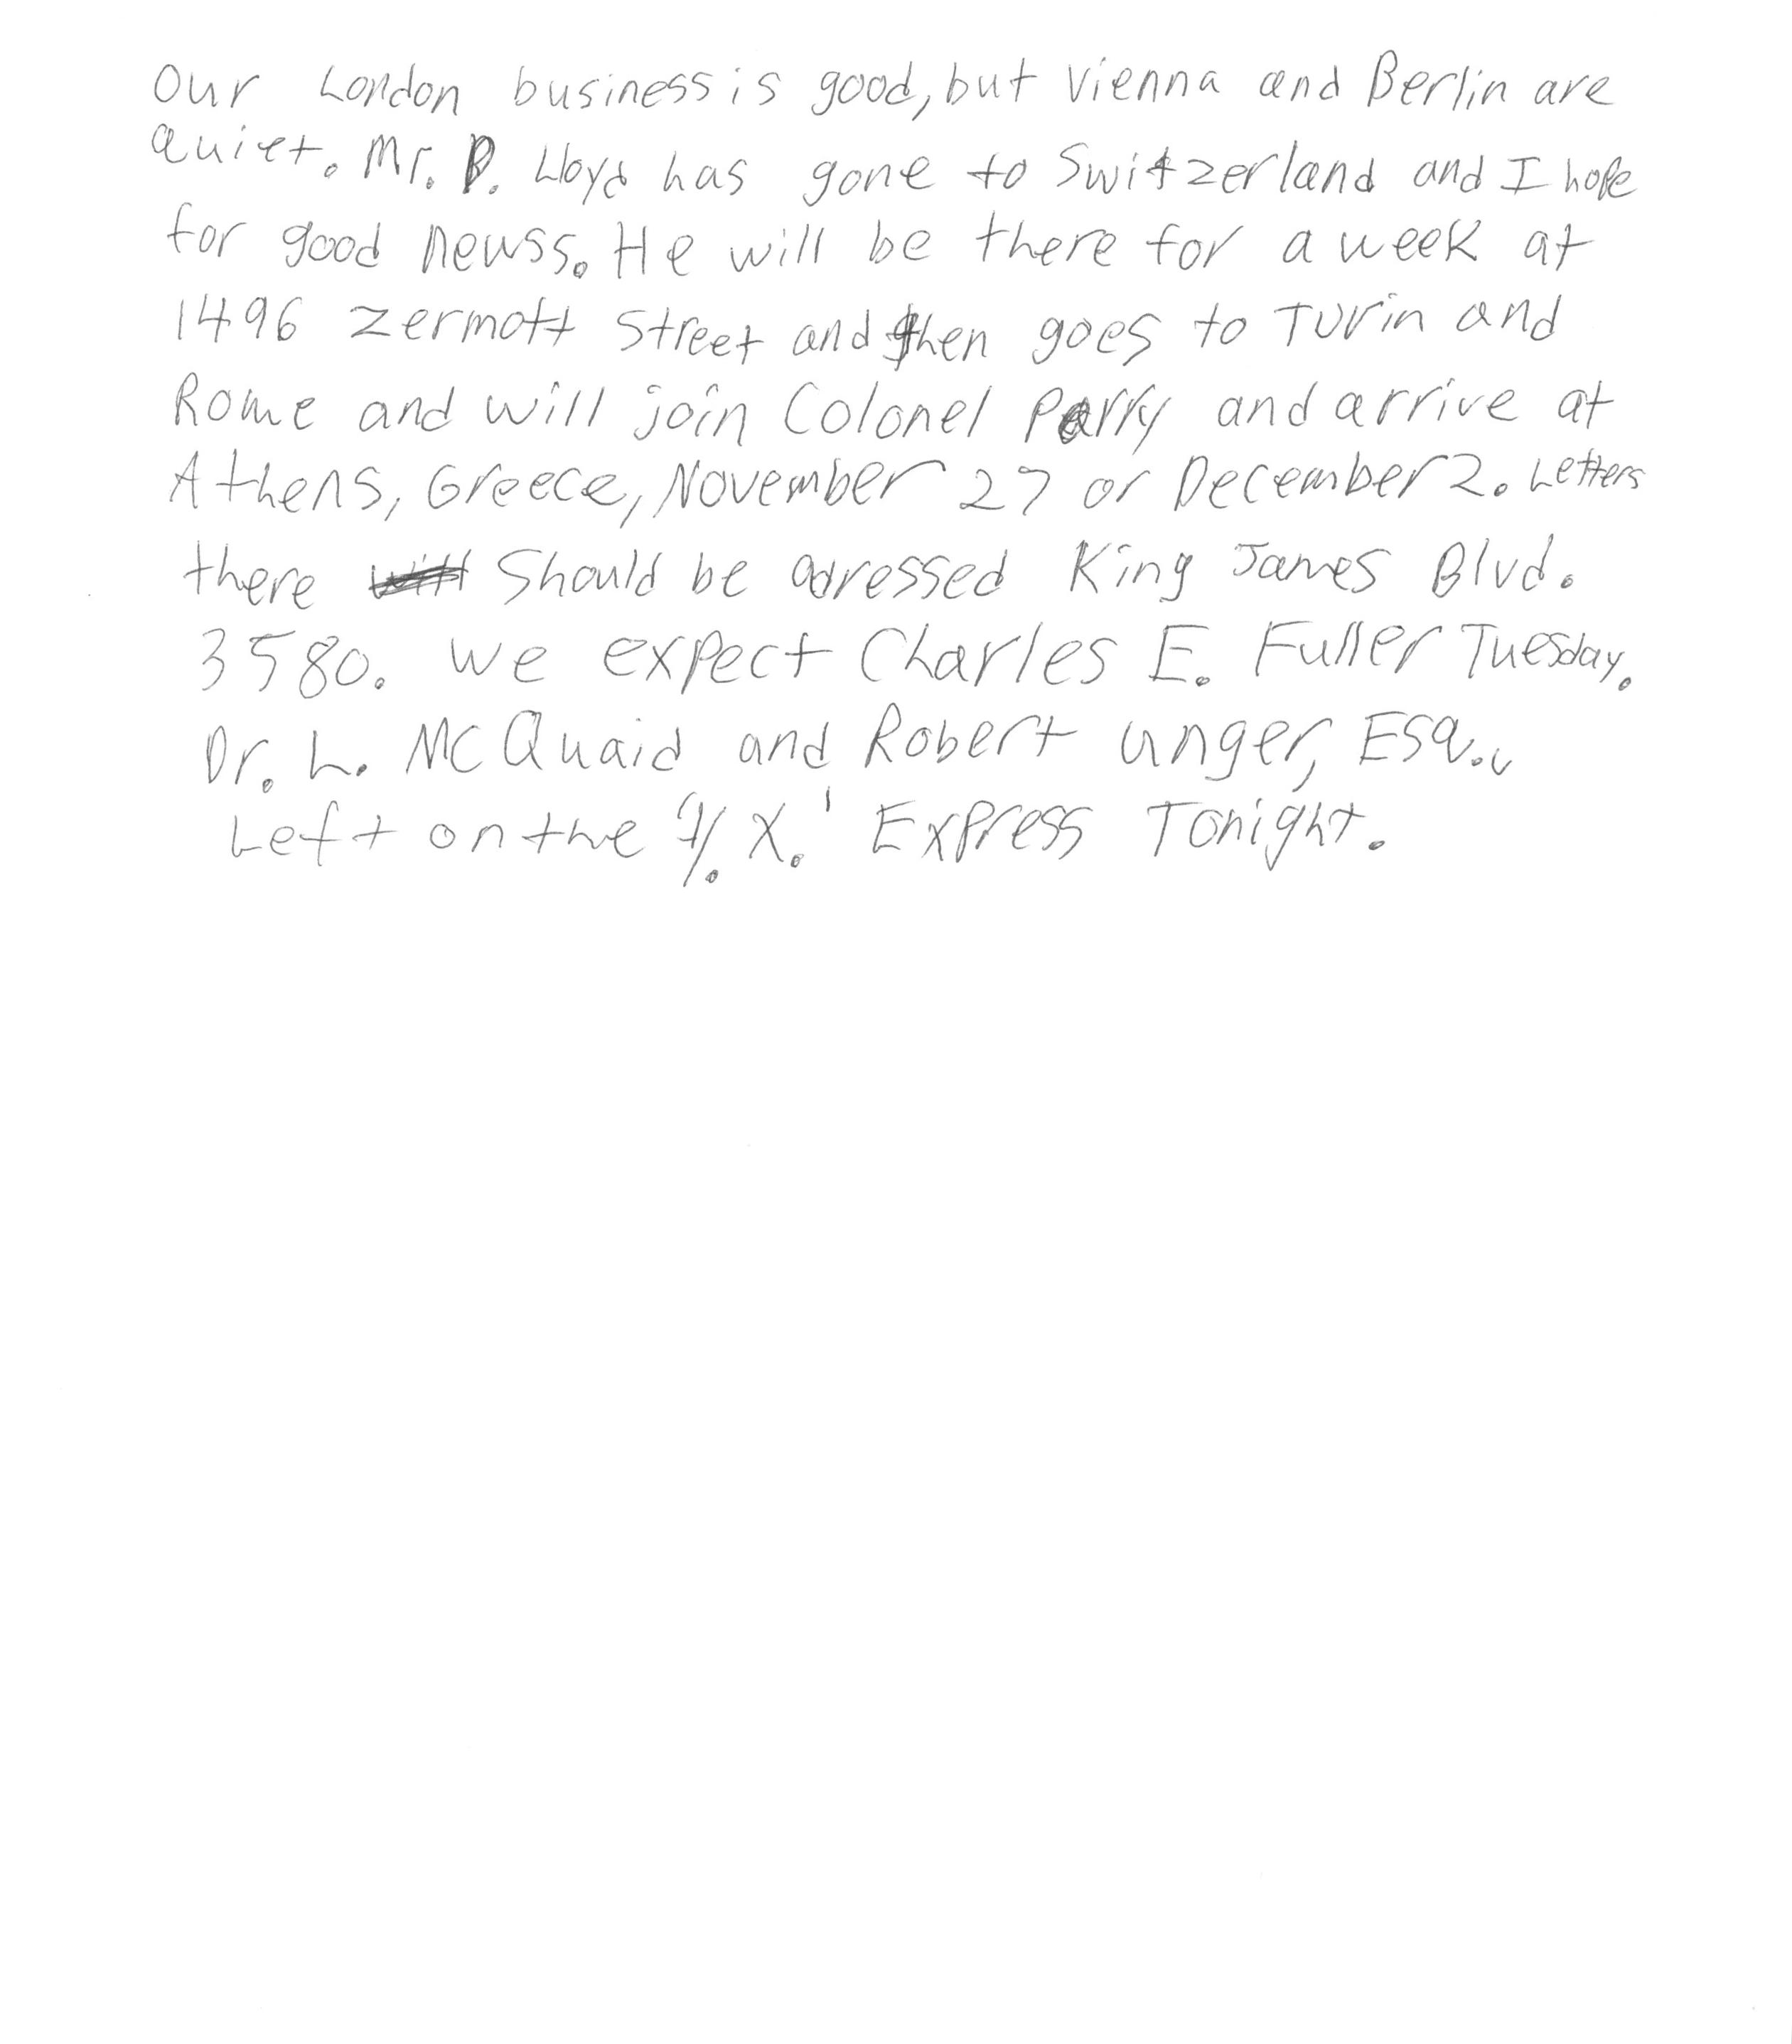 Our London business is good, but Vienna and Berlin are
quiet. Mr. D. Lloyd has gone to Switzerland and I hope
for good newss. He will be there for a week at
1496 Zermott Street and then goes to Turin and
Rome and will join Colonel Parry and arrive at
Athens, Greece, November 27 or December 2. Letters
there should be adressed King James Blvd.
3580. We expect Charles E. Fuller Tuesday.
Dr. L. McQuaid and Robert Unger, Esq.,
Left on the 'Y.X.' Express Tonight.